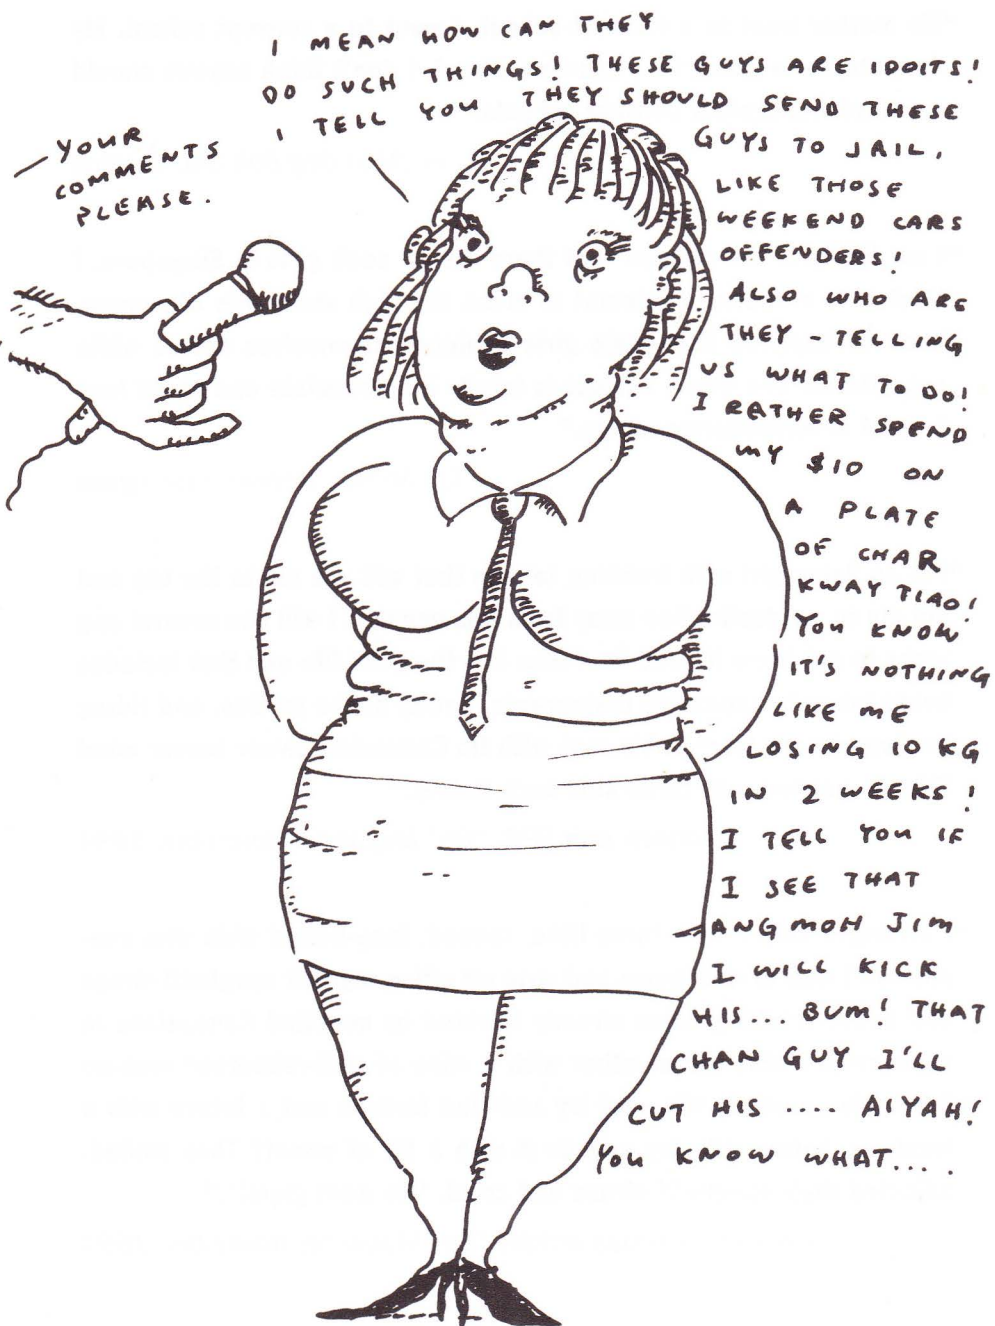 — YOUR
COMMENTS
PLEASE.
I MEAN HOW CAN THEY
DO SUCH THINGS! THESE GUYS ARE IDOITS!
I TELL YOU THEY SHOULD SEND THESE
GUYS TO JAIL,
LIKE THOSE
WEEKEND CARS
OFFENDERS!
ALSO WHO ARE
THEY - TELLING
US WHAT TO DO!
I RATHER SPEND
MY $10 ON
A PLATE
OF CHAR
KWAY TIAO!
YOU KNOW
IT'S NOTHING
LIKE ME
LOSING 10 KG
IN 2 WEEKS!
I TELL YOU IF
I SEE THAT
ANG MOH JIM
I WILL KICK
HIS... BUM! THAT
CHAN GUY I'LL
CUT HIS .... AIYAH!
YOU KNOW WHAT....